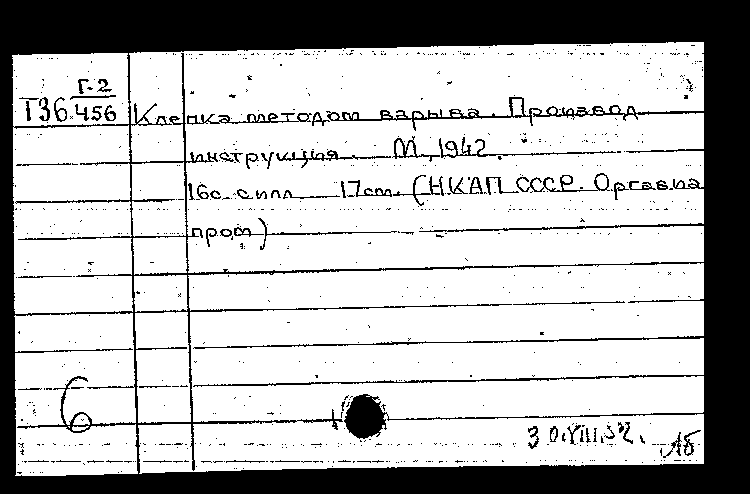 Г-2
Г36 456 Клепка методом взрыва. Производ.
инструкция. М, 1942.
16с. с илл 17см. (НКАП СССР. Оргавиа
пром)
6
30.VIII.52.
Аб